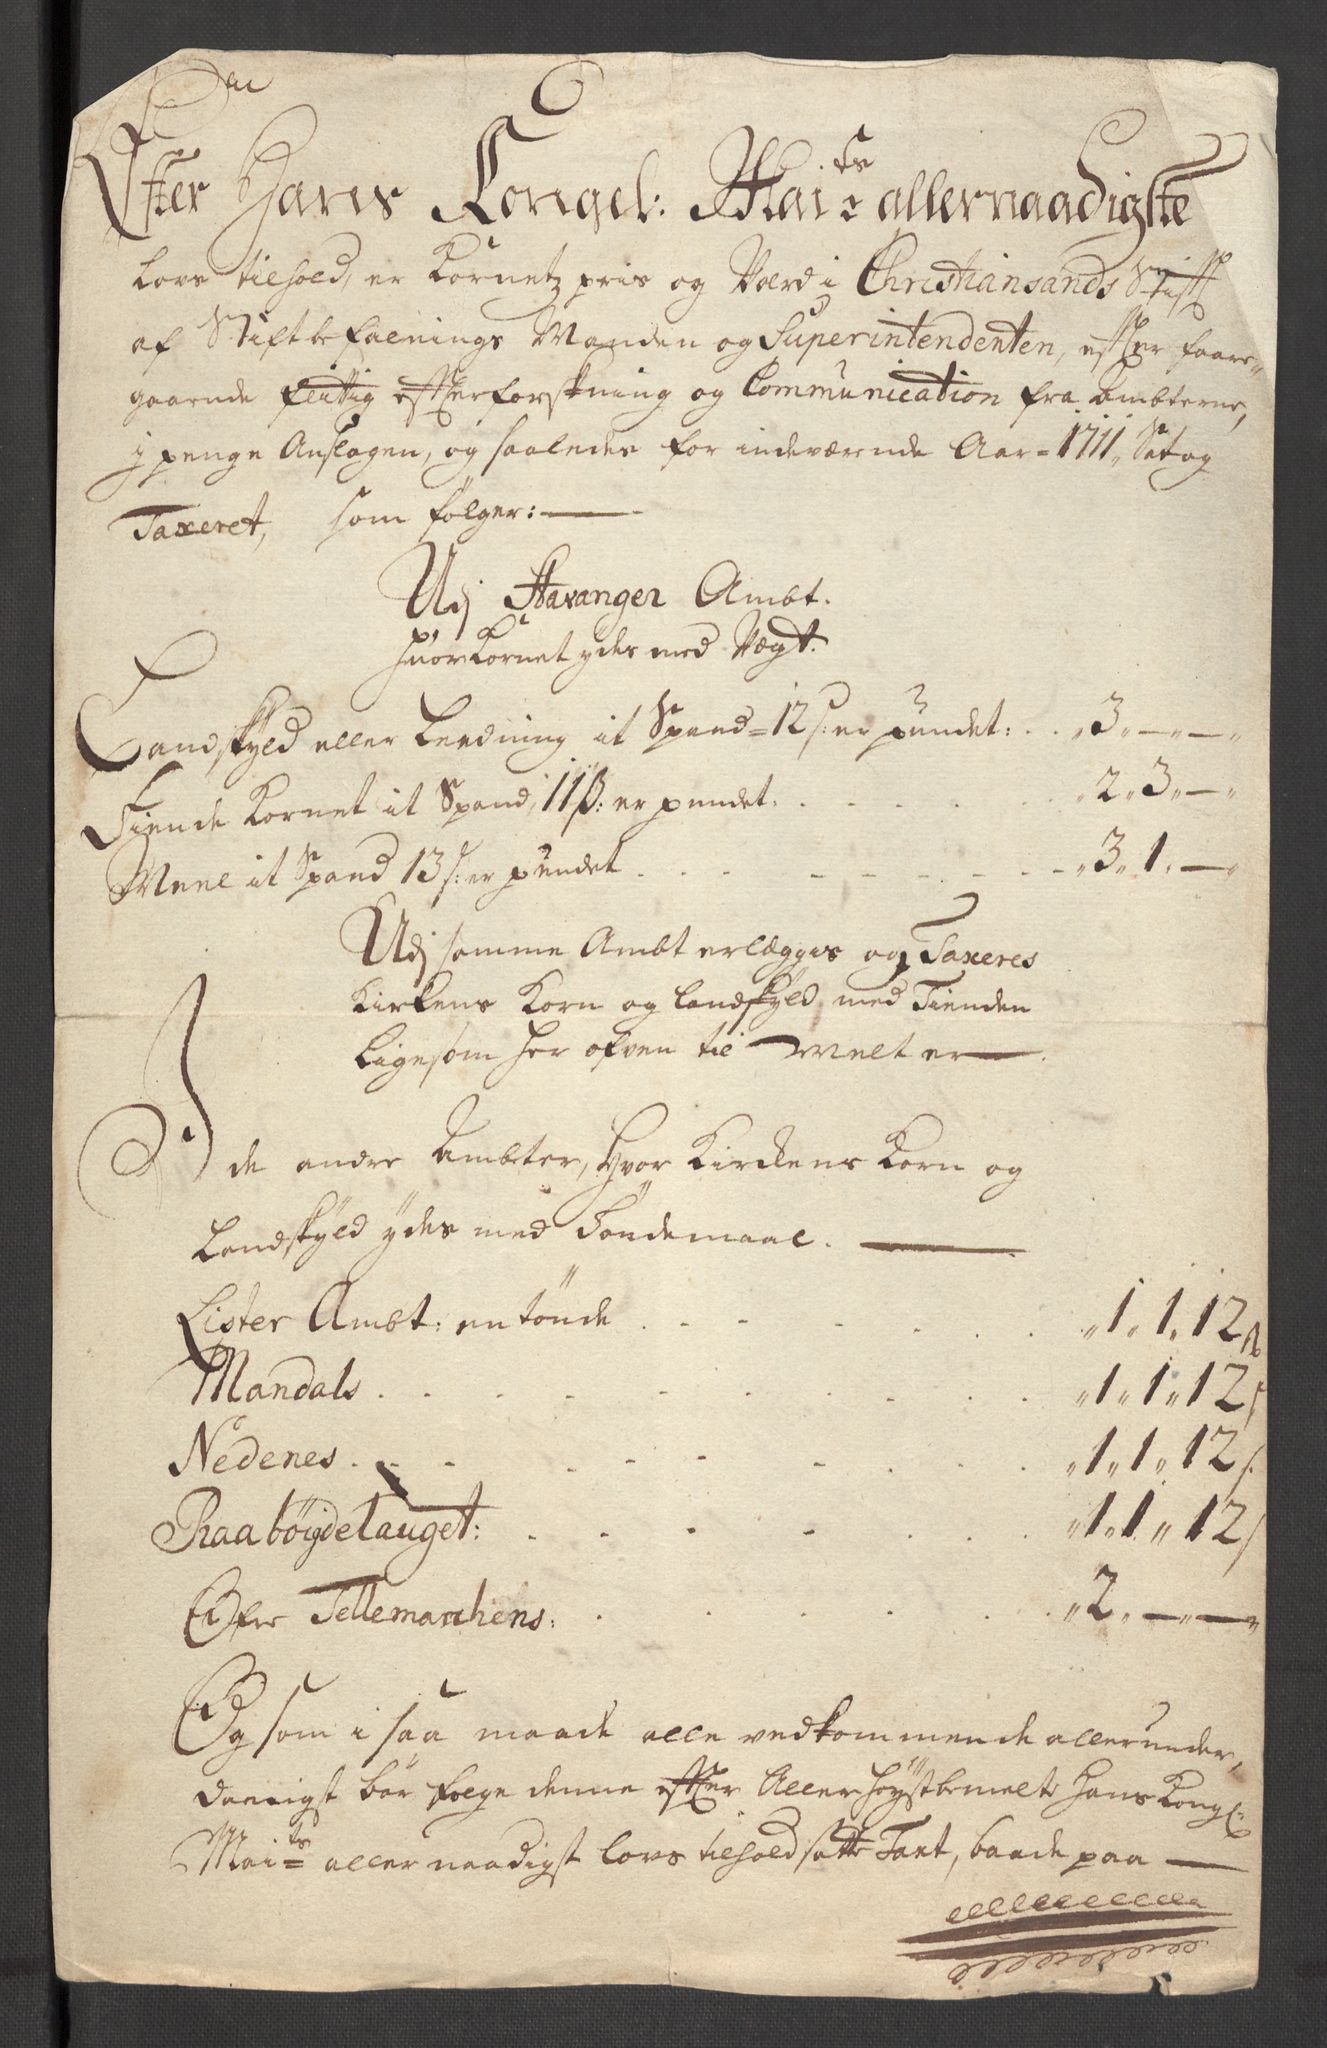 Efter Hans Kongel: Mai:ts allernaadigste
Lovs tilhold, er Kornetz pris og Værd i Christiansands Stift
af Stiftbefalnings Manden og Superintendenten, efter faare-
gaaende flittig efterforskning og Communication fra Ambterne,
j penge Anslagen, og saaledes for indeværende Aar = 1711 „ Sat og
Taxeret, som følger:
Udj Stavanger Ambt.
huor Kornet ydes med Vægt.
Landskyld eller Leedning it Spand = 12 s: er pundet: . . „ 3 „ — „ — „
Tiende Kornet it Spand, 11 s: er pundet. . . . „ 2 „ 3 „ — „
Meel it Spand 13 s: er pundet . . . . „ 3 „ 1 „ — „
Udj samme Ambt erlægges og Taxeres
Kirkens Korn og landskyld med Tienden
Ligesom her ofven til melt er
I de andre Ambter, Hvor Kirckens Korn og
Landskyld ydes med Tøndemaal.
Lister Ambt: en tønde . . . . „ 1 „ 1 „ 12 s
Mandals . . . . „ 1 „ 1 „ 12 s
Nedenes . . . . „ 1 „ 1 „ 12 s.
Raabøigdelauget: . . . . „ 1 „ 1 „ 12 s
Øfre Tellemarchens: . . . . „ 2 „ — „ — „
Og som i saa maade alle vedkommende allerunder,
danigst bør følge denne efter Allerhøystbemelte Hans Kongl:
Mai:ts allernaadigst lovs tilhold satte Taxt, baade paa